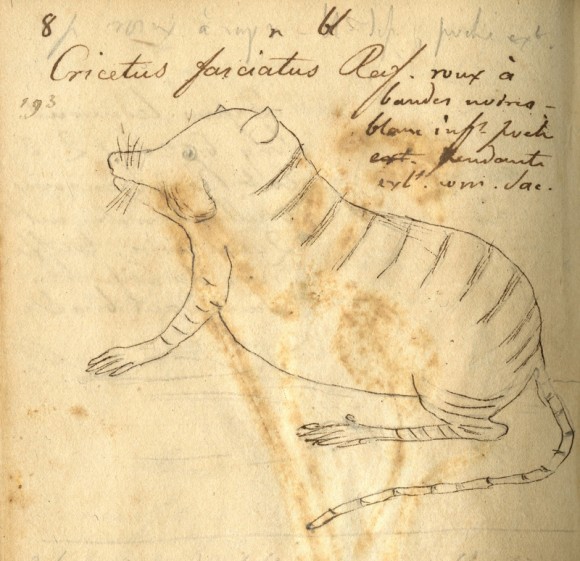 8
Cricetus fasciatus Raf. roux à
193
bandes noires -
blanc inf.t poche
ext. pendante
ext.t com. sac.